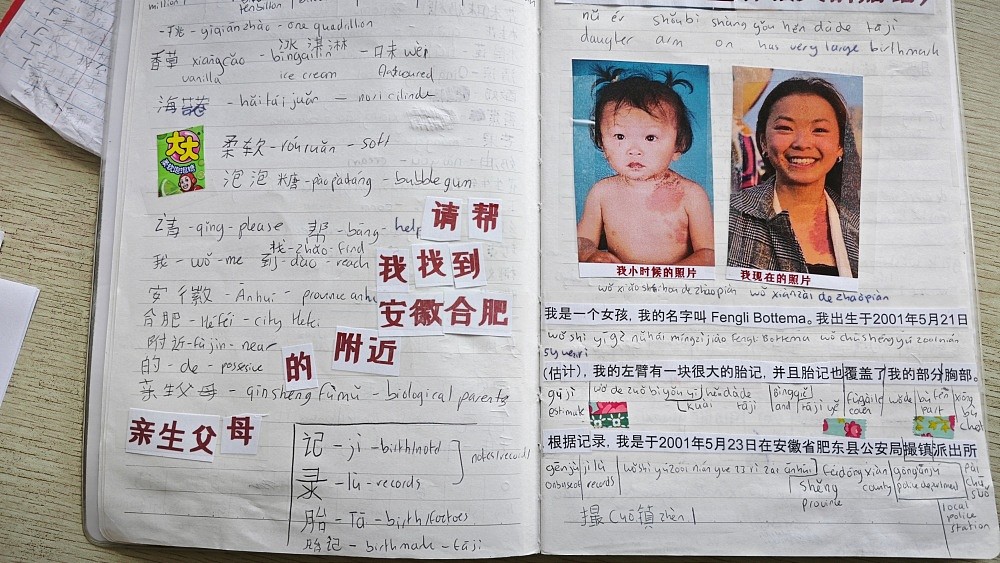 million
- yīqiānzhào - one quadrillion
香草 xiāngcǎo - bīngqílín - 口味 wèi
冰淇淋
vanilla ice cream flavoured
海苔 - hǎitáijuǎn - nori cilinde
大大
柔软 - róuruǎn - soft
泡泡糖 - pàopàotáng - bubblegum
请 - qǐng - please 帮 - bāng - help
请帮
找 - zhǎo - find
我 - wǒ - me 到 - dào - reach
我找到
安徽 - Ānhuī - province anh
安徽合肥
合肥 - Héféi - city Hefei
附近 - fùjìn - near
附近
的 - de - possesive
的
亲生父母 - qīnshēng fùmǔ - biological parents
亲生父母
记 - jì - birth/note
录 - lù - records
notes/records
胎 - Tā - birth/foetoes
胎记 - birthmark - tāji
nǚ ér shǒubì shàng yǒu hěn dàde tāji
daughter arm on has very large birthmark
我小时候的照片
我现在的照片
wǒ xiǎo shíhou de zhàopiàn wǒ xiànzài de zhàopiàn
我是一个女孩，我的名字叫 Fengli Bottema。我出生于2001年5月21日
wǒ shì yī gè nǚhái míngzì jiào Fengli Bottema wǒ chūshēng yú
(估计)，我的左臂有一块很大的胎记，并且胎记也覆盖了我的部分胸部。
gūjì wǒ de zuǒ bì yǒu yī kuài hěndàde tāji bìngqiě tāji yě fùgàile wǒde bùfèn xiōng bù
estimate and part chest
根据记录，我是于2001年5月23日在安徽省肥东县公安局撮镇派出所
gēnjù jìlù wǒ shì yú 2001 nián yue 23 rì zài ānhuī Féidōng xiàn gōng'ānjú pài chū suǒ
onbased records shěng county police department
province
local police station
撮 cuō 镇 zhèn